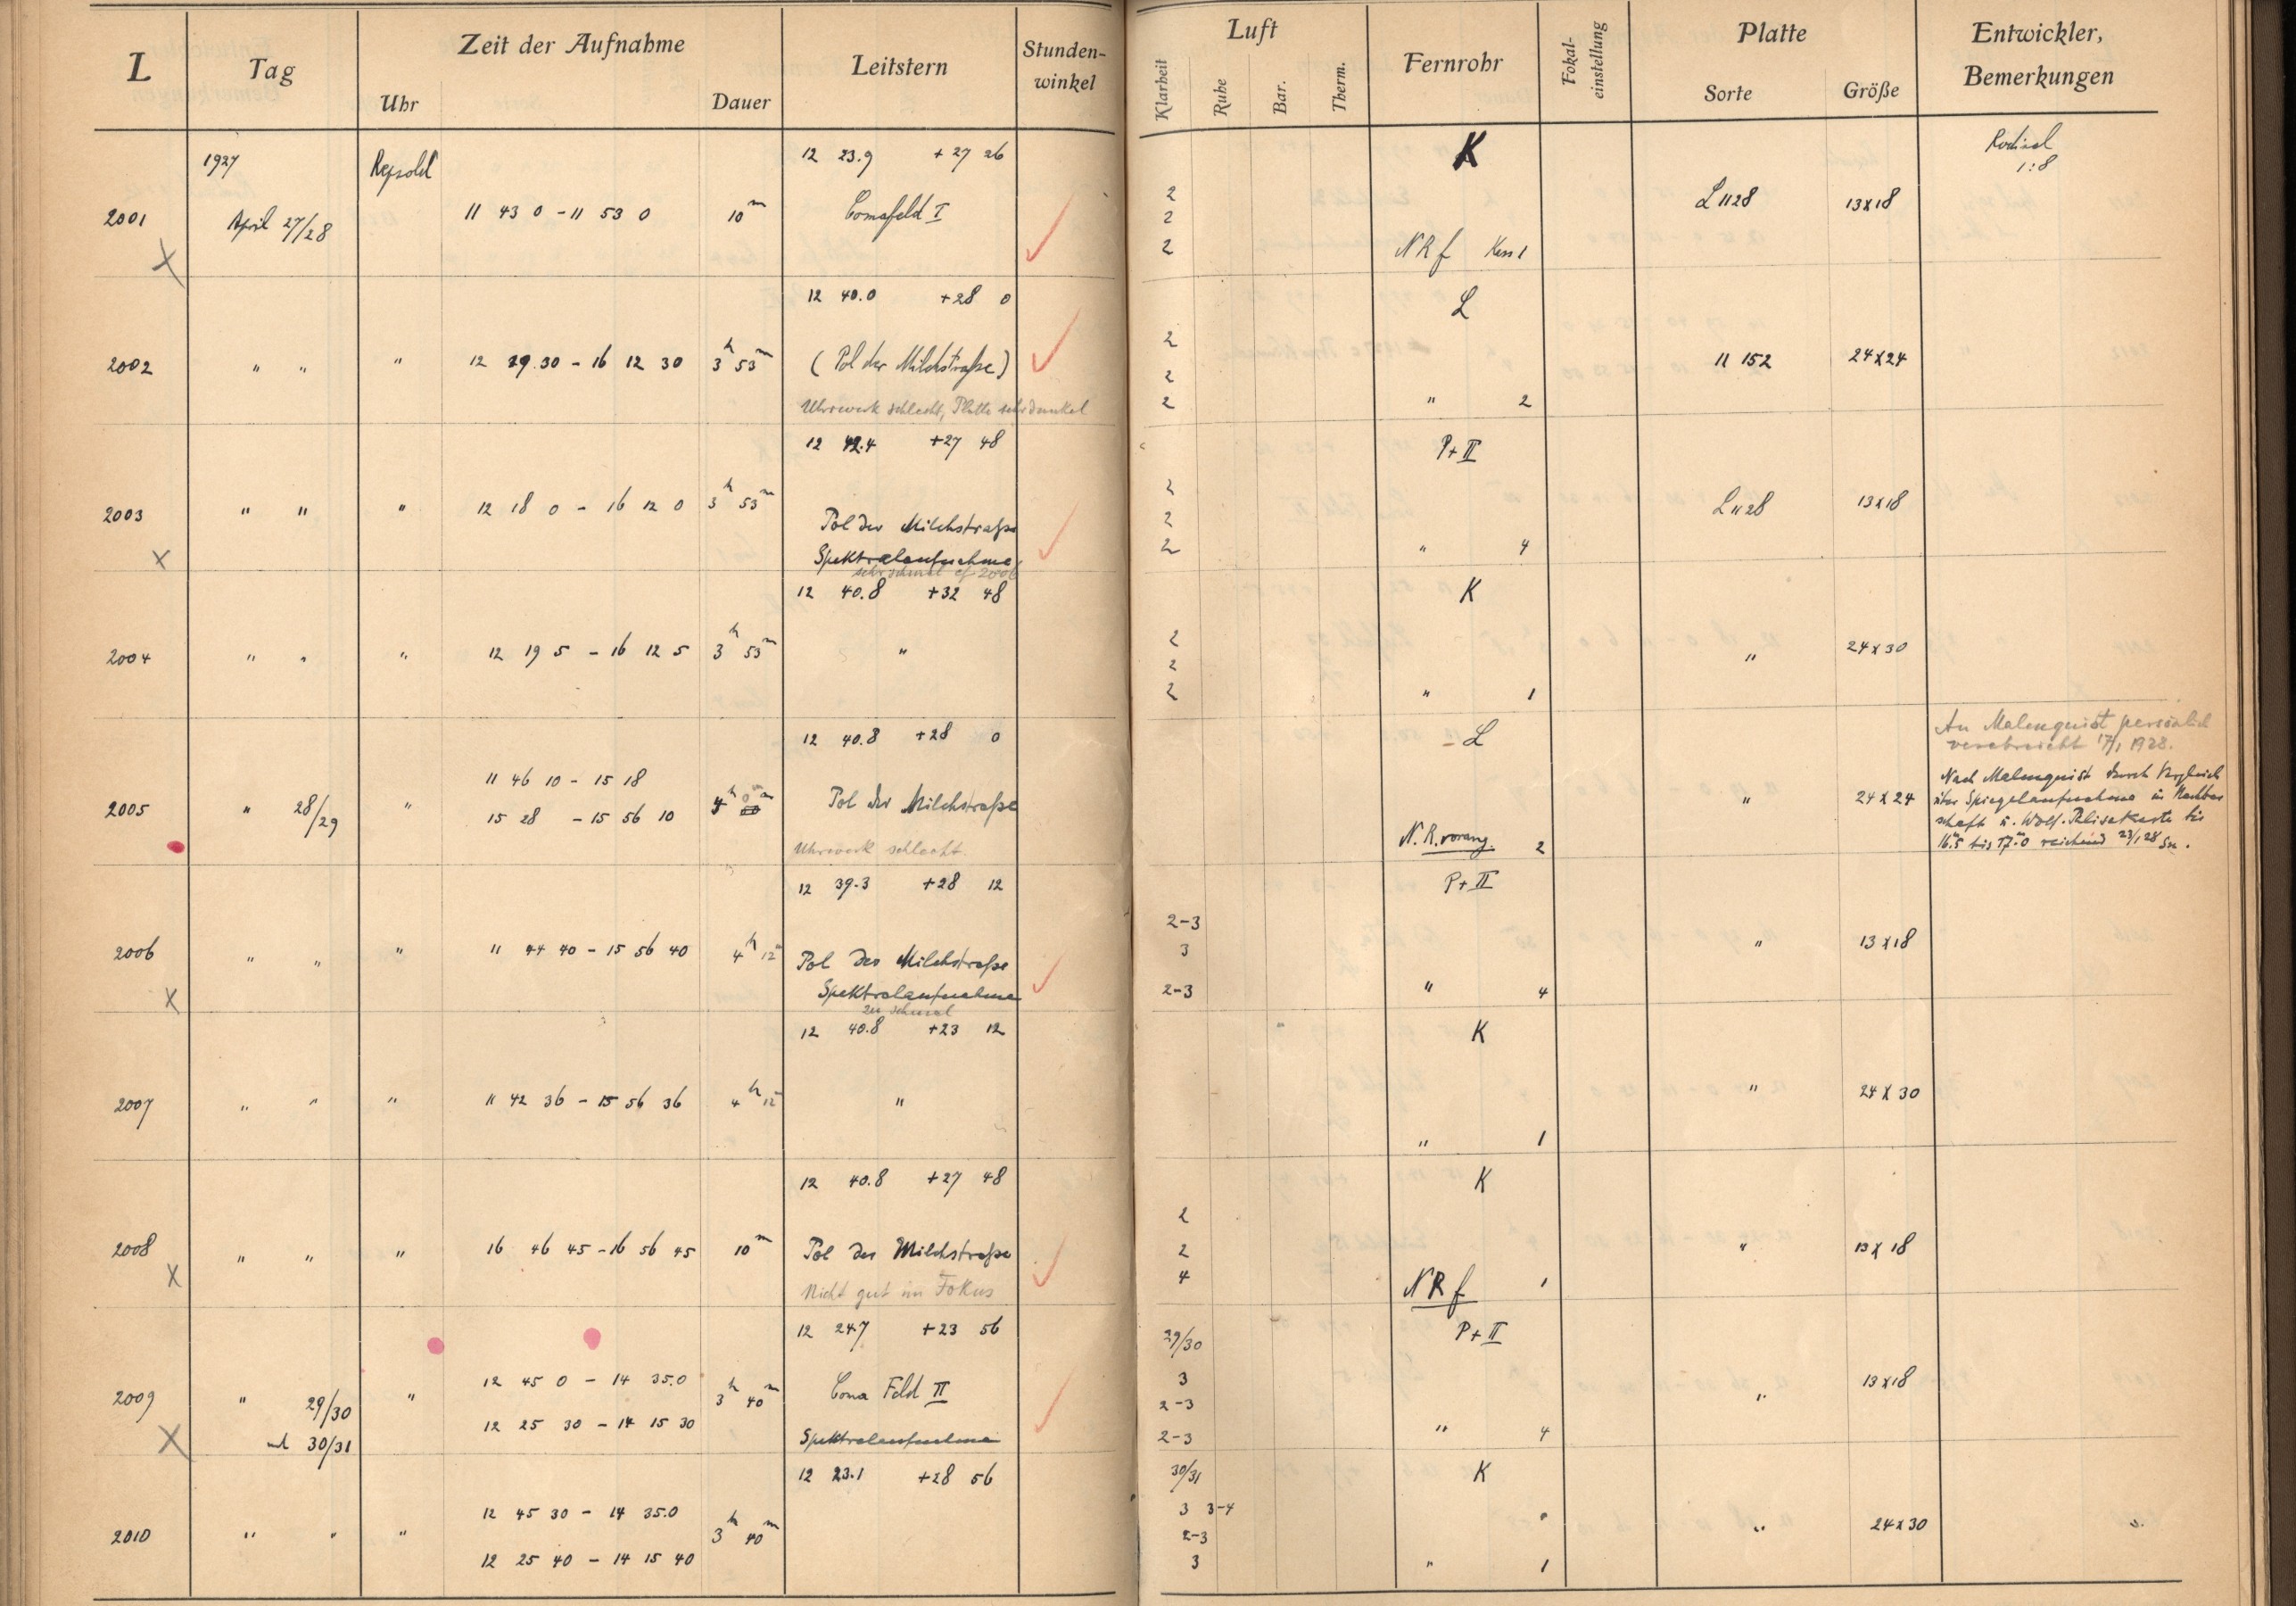 L Tag Zeit der Aufnahme Leitstern Stunden-winkel Luft Fernrohr Fokal-einstellung Platte Entwickler, Bemerkungen
Uhr Dauer Klarheit Ruhe Bar. Therm. Sorte Größe
1927 Repsold 12 23.9 +27 26 K Rodinal
1:8
2001 April 27/28 11 43 0 - 11 53 0 10m Comafeld I 2 L 1128 13x18
2
2 NRf Kass 1
12 40.0 +28 0 L
2002 " " " 12 29.30 - 16 12 30 3h 53m (Pol der Milchstraße) 2 11 152 24x24
2
Uhrwerk schlecht, Platte sehr dunkel 2 " 2
12 42.4 +27 48 P+II
2003 " " " 12 18 0 - 16 12 0 3h 53m 2 L 1128 13x18
Pol der Milchstraße 2
Spektralaufnahme 2 " 4
sehr schmal cf 2006
12 40.8 +32 48 K
2004 " " " 12 19 5 - 16 12 5 3h 53m " 2 " 24x30
2
2 " 1
12 40.8 +28 0 L An Malmquist persönlich
verabreicht 17/1 1928.
11 46 10 - 15 18 Nach Malmquist durch Vergleich
2005 " 28/29 " 15 28 - 15 56 10 4h 0m Pol der Milchstraße " 24x24 Spiegelaufnahme in Nachbar
schaft u. Wolf-Palisakarte bis
Uhrwerk schlecht. N.R. vorang. 2 16.5 bis 17.0 reichend 23/1 28
12 39.3 +28 12 P+II
2-3
2006 " " " 11 44 40 - 15 56 40 4h 12m Pol der Milchstraße 3 " 13x18
Spektralaufnahme 2-3 " 4
zu schmal
12 40.8 +23 12 K
2007 " " " 11 42 36 - 15 56 36 4h 12 " " 24x30
" 1
12 40.8 +27 48 K
2
2008 " " " 16 46 45 - 16 56 45 10m Pol der Milchstraße 2 " 13x18
Nicht gut im Fokus 4 NRf 1
12 24.7 +23 56 29/30 P+II
12 45 0 - 14 35.0 3
2009 " 29/30 " 3h 40m Coma Feld II 2-3 " 13x18
und 30/31 12 25 30 - 14 15 30 Spektralaufnahme 2-3 " 4
12 23.1 +28 56 30/31 K
12 45 30 - 14 35.0 3 3-4
2010 " " " 3h 40m 2-3 " 24x30
12 25 40 - 14 15 40 3 " 1